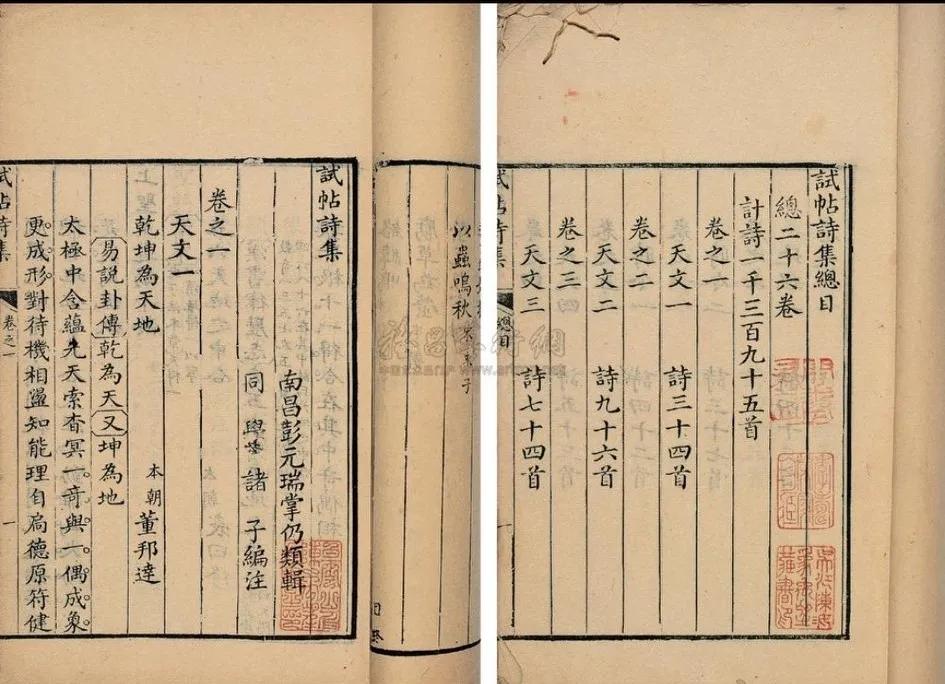 試帖詩集總目
總二十六卷
計詩一千三百九十五首
卷之一
天文一 詩三十四首
卷之二
天文二 詩九十六首
卷之三
天文三 詩七十四首
試帖詩集 總目
以蟲鳴秋
試帖詩集
南昌彭元瑞掌仍類輯
同學諸子編注
卷之一
天文一
乾坤為天地 本朝董邦達
易說卦傳乾為天又坤為地
太極中含蘊先天索杳冥一奇與一偶成象
更成形對待機相盪知能理自扃德原符健
試帖詩集 卷之一 一